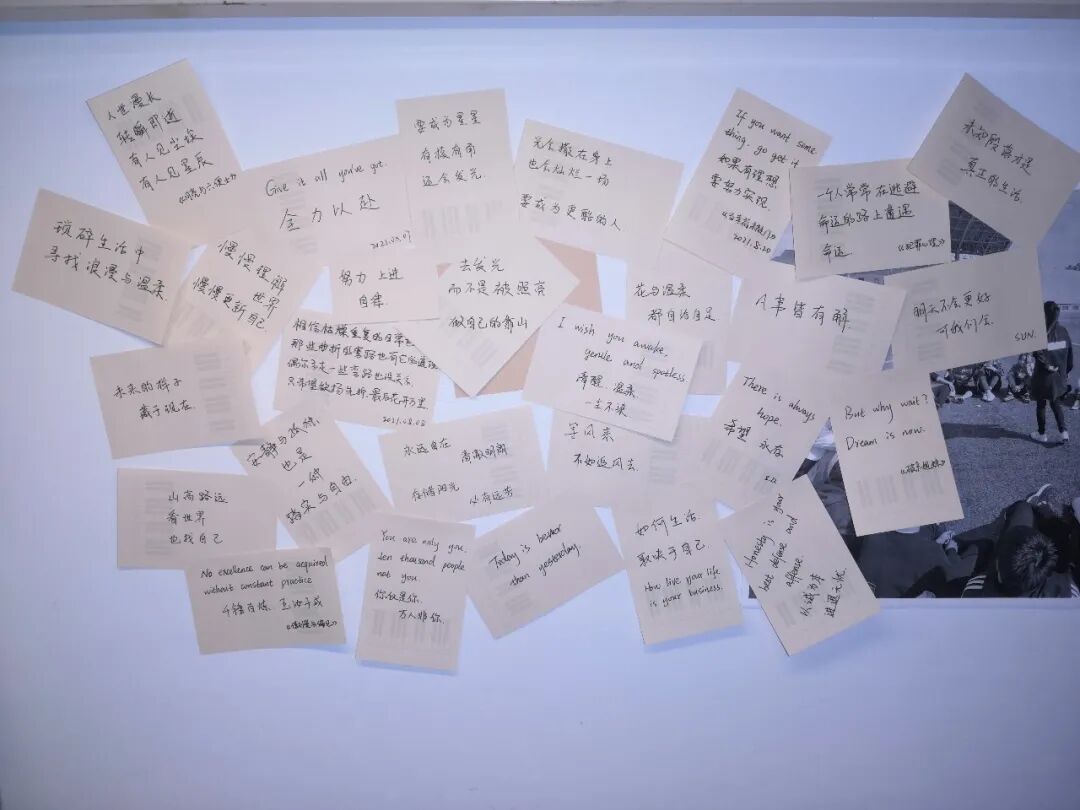 人世漫长
转瞬即逝
有人见尘埃
有人见星辰
Give it all you've got.
全力以赴
2021.08.07
要成为星星
有棱有角
还会发光.
光会撒在身上
也会灿烂一场
要成为更酷的人
If you want some
thing. go get it
如果有理想
要努力实现.
《当幸福来敲门》
2021.8.20
一个人常常在逃避
命运的路上遭遇
命运
未知段落才是
真正的生活.
琐碎生活中
寻找浪漫与温柔
慢慢理解
世界
慢慢更新自己
努力 上进
自律.
去发光
而不是被照亮
做自己的靠山
花与温柔
都自洽自足
万事皆有解
明天不会更好
可我们会.
SUN.
未来的样子
藏于现在.
相信枯燥重复的日常也
那些曲折
偶尔多走一些弯路也没关系
最后花开万里.
2021.08.08
I wish you awake,
gentle and spotless
清醒 温柔
一尘不染
There is always
hope.
希望 永存
But why wait?
Dream is now.
安静与孤独.
也是
一种
踏实与自由.
永远自在
清澈明朗
存惜阳光
必有远芳
等风来
不如追风去.
山高路远
看世界
也找自己
No excellence can be acquired
without constant practice
千锤百炼. 玉汝于成
《傲慢与偏见》
You are only you.
ten thousand people
not you
你仅是你.
万人非你.
Today is better
than yesterday.
如何生活.
取决于自己.
How live your life
is your business.
Honesty is your
best defense and
offense.
以诚为本
进退无忧.